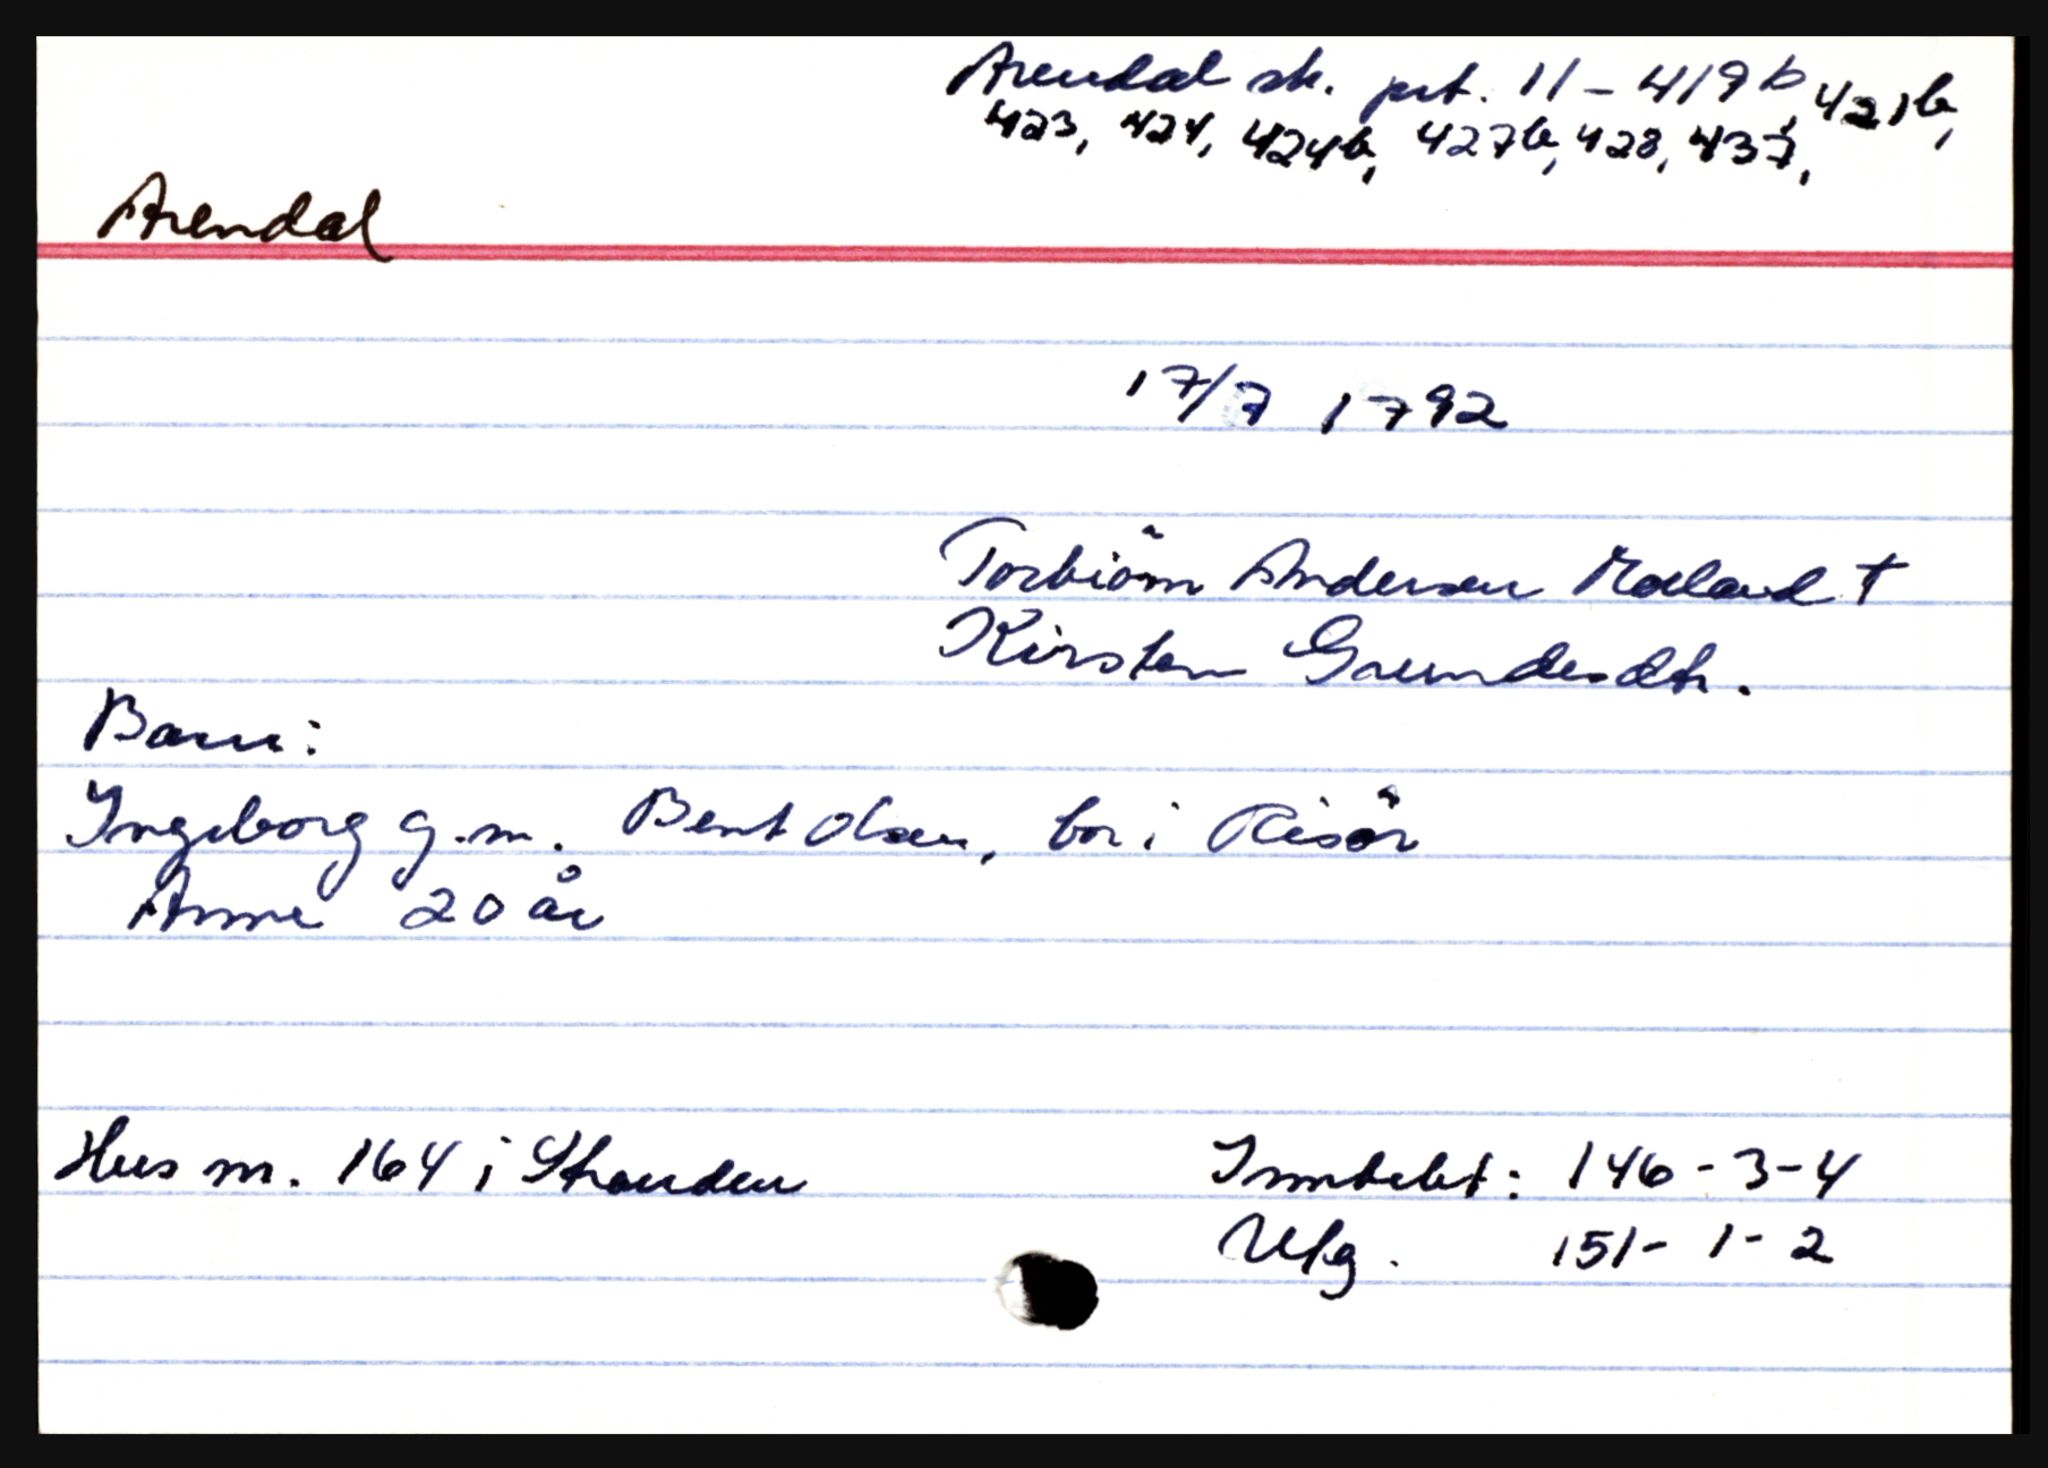 Arendal sk. prt. 11 - 419b, 421b,
423, 424, 424b, 427b, 428, 437,
Arendal
17/7 1792
Torbiörn Andersen †
Kirsten Gundersdtr.
Barn:
Ingeborg g.m. Bent Olsen, bor i Risör
Anne 20 år
Hus nr. 164 i Stranden
Inntekt: 146 - 3 - 4
Utg. 151 - 1 - 2